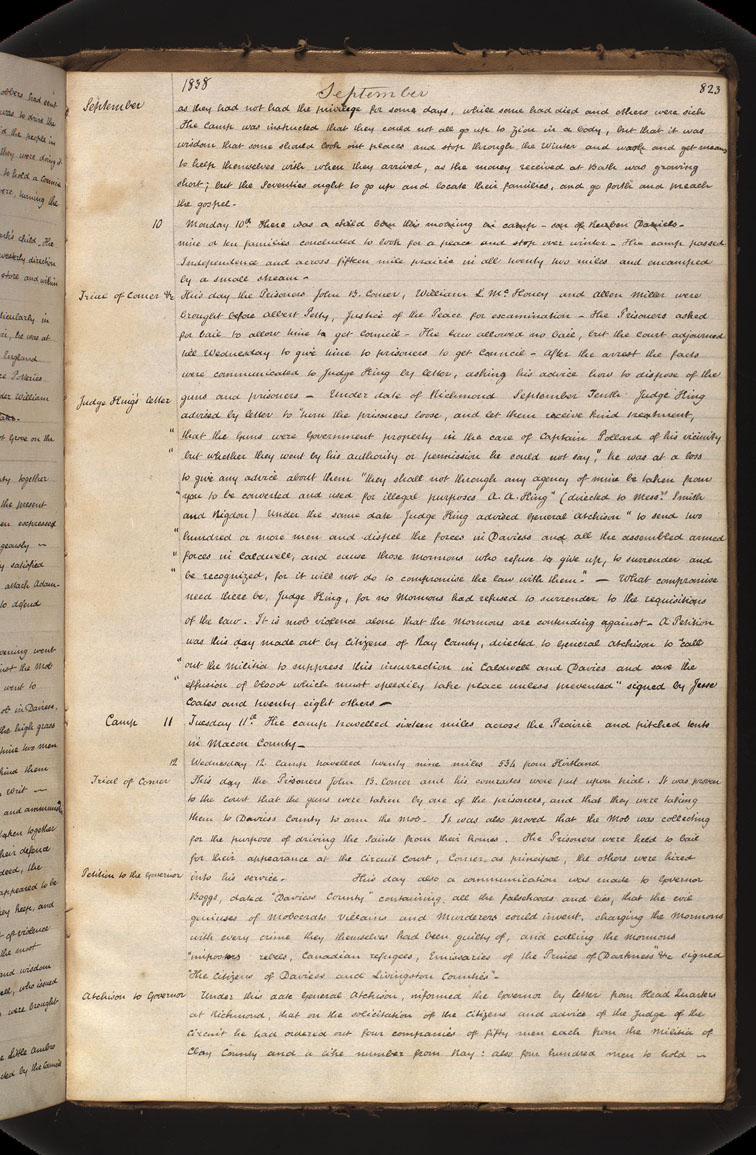 1838 September 823
September as they had not had the privilege for some days, while some had died and others were sick
The Camp was instructed that they could not all go up to Zion in a body, but that it was
wisdom that some should look out places and stop through the Winter and work and get means
to help themselves with when they arrived, as the money received at Bath was growing
short; but the Seventies ought to go up and locate their families, and go forth and preach
the gospel.
10 Monday 10th There was a child born this morning in camp - son of Reuben Daniels.
nine or ten families concluded to look for a place and stop over winter - The camp passed
Independence and across fifteen mile prairie in all twenty two miles and encamped
by a small stream.
Trial of Comer &c This day the Prisoners John B. Comer, William L. Mc Honey and Allen Miller were
brought before Albert Petty, Justice of the Peace for examination - The Prisoners asked
for bail to allow time to get council - The law allowed no bail, but the court adjourned
till Wednesday to give time to prisoners to get council - After the arrest the facts
were communicated to Judge King by letter, asking his advice how to dispose of the
Judge King's letter guns and prisoners - Under date of Richmond September Tenth Judge King
advised by letter to "turn the prisoners loose, and let them receive kind treatment,
" that the Guns were Government property in the care of Captain Pollard of his vicinity
" but whether they went by his authority or permission he could not say," he was at a loss
to give any advice about them "they shall not through any agency of mine be taken from
" you to be converted and used for illegal purposes A. A. King" (directed to Messrs. Smith
and Rigdon) Under the same date Judge King advised General Atchison "to send two
" hundred or more men and dispel the forces in Daviess and all the assembled armed
" forces in Caldwell, and cause those Mormons who refuse to give up, to surrender and
" be recognized, for it will not do to compromise the law with them." - What compromise
need there be, Judge King, for no Mormons had refused to surrender to the requisitions
of the law. It is mob violence alone that the Mormons are contending against - A Petition
was this day made out by Citizens of Ray County, directed to General Atchison to "call
" out the Militia to suppress this insurrection in Caldwell and Davies and save the
" effusion of blood which must speedily take place unless prevented" signed by Jesse
Coates and twenty eight others -
Camp 11 Tuesday 11th The camp travelled sixteen miles across the Prairie and pitched tents
in Macon County -
12 Wednesday 12 Camp travelled twenty nine miles 534 from Kirtland
Trial of Comer This day the Prisoners John B. Comer and his comrades were put upon trial. It was proven
to the Court that the guns were taken by one of the prisoners, and that they were taking
them to Daviess County to arm the mob. It was also proved that the Mob was collecting
for the purpose of driving the Saints from their homes. The Prisoners were held to bail
for their appearance at the Circuit Court, Comer as principal, the others were hired
Petition to the Governor into his service. This day also a communication was made to Governor
Boggs, dated "Daviess County" containing all the falsehoods and lies, that the evil
geniuses of Mobocrats Villains and Murderers could invent, charging the Mormons
with every crime they themselves had been guilty of, and calling the Mormons
"impostors rebels, Canadian refugees, Emissaries of the Prince of Darkness" &c signed
"The Citizens of Daviess and Livingston Counties" -
Atchison to Governor Under this date General Atchison, informed the Governor by letter from Head Quarters
at Richmond, that on the solicitation of the Citizens and advice of the Judge of the
Circuit he had ordered out four companies of fifty men each from the Militia of
Clay County and a like number from Ray: also four hundred men to hold -